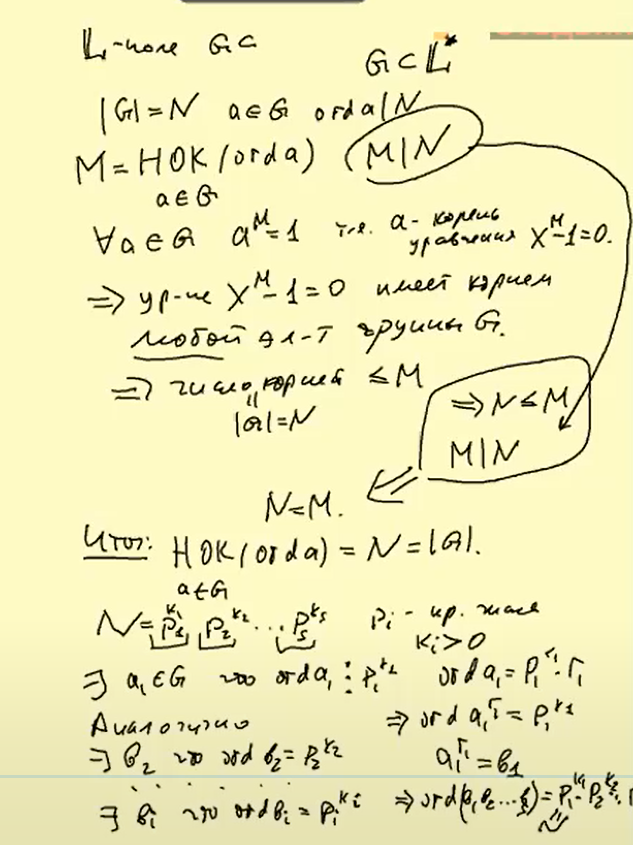 L-поле G⊂
G⊂L*
|G|=N a∈G ord a|N
M=НОК(ord a) (M|N)
a∈G
∀a∈G a^M=1 т.е. a- корень
уравнения X^M-1=0.
⇒ ур-ие X^M-1=0 имеет корнем
любой эл-т группы G.
⇒ число корней ≤M
|G|=N
⇒N≤M
M|N
N=M.
Итог: НОК(ord a)=N=|G|.
a∈G
N=p_1^{k_1} p_2^{k_2}...p_s^{k_s} p_i- пр. числа
k_i>0
∃ a_1∈G что ord a_1 ⋮ p_1^{k_1} ord a_1=p_1^{k_1}·r_1
Аналогично ⇒ ord a_1^{r_1}=p_1^{k_1}
∃ b_2 что ord b_2=p_2^{k_2} a_1^{r_1}=b_1
∃ b_i что ord b_i=p_i^{k_i} ⇒ord(b_1b_2...b_s)=p_1^{k_1}·p_2^{k_2}
N